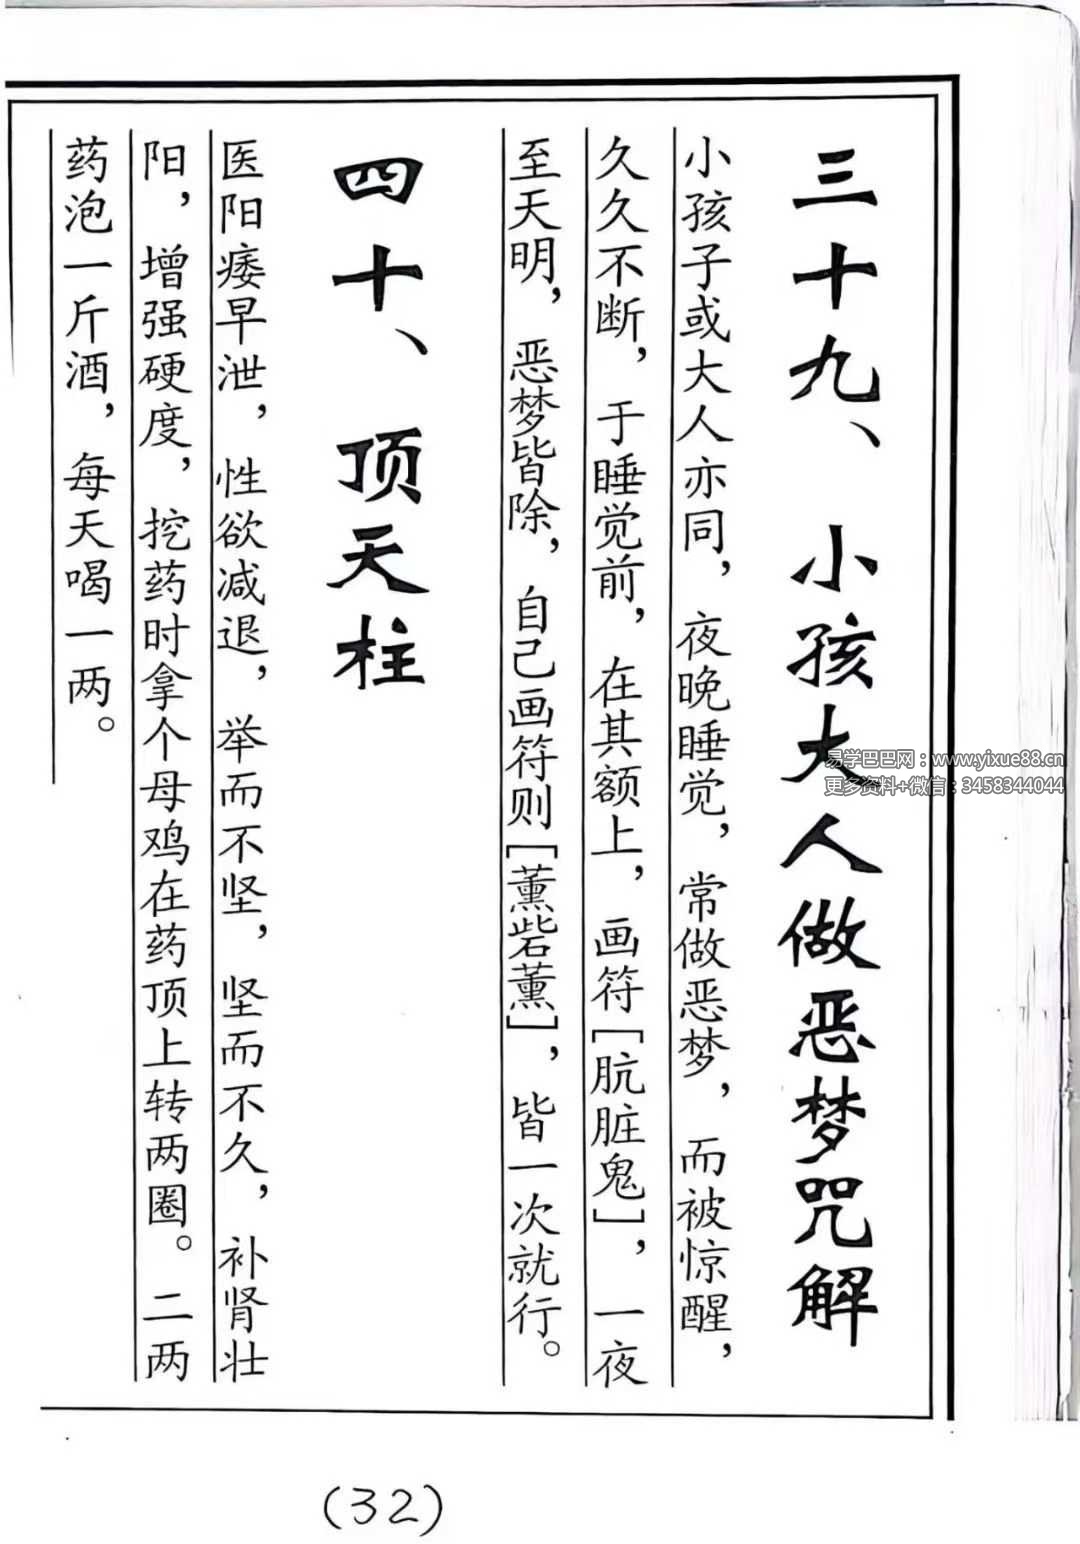 三十九、小孩大人做恶梦咒解
小孩子或大人亦同，夜晚睡觉，常做恶梦，而被惊醒，
久久不断，于睡觉前，在其额上，画符[肮脏鬼]，一夜
至天明，恶梦皆除，自己画符则[薰砦薰]，皆一次就行。
四十、顶天柱
医阳痿早泄，性欲减退，举而不坚，坚而不久，补肾壮
阳，增强硬度，挖药时拿个母鸡在药顶上转两圈。二两
药泡一斤酒，每天喝一两。
易学巴巴网：www.yixue88.cn
更多资料+微信：3458344044
(32)